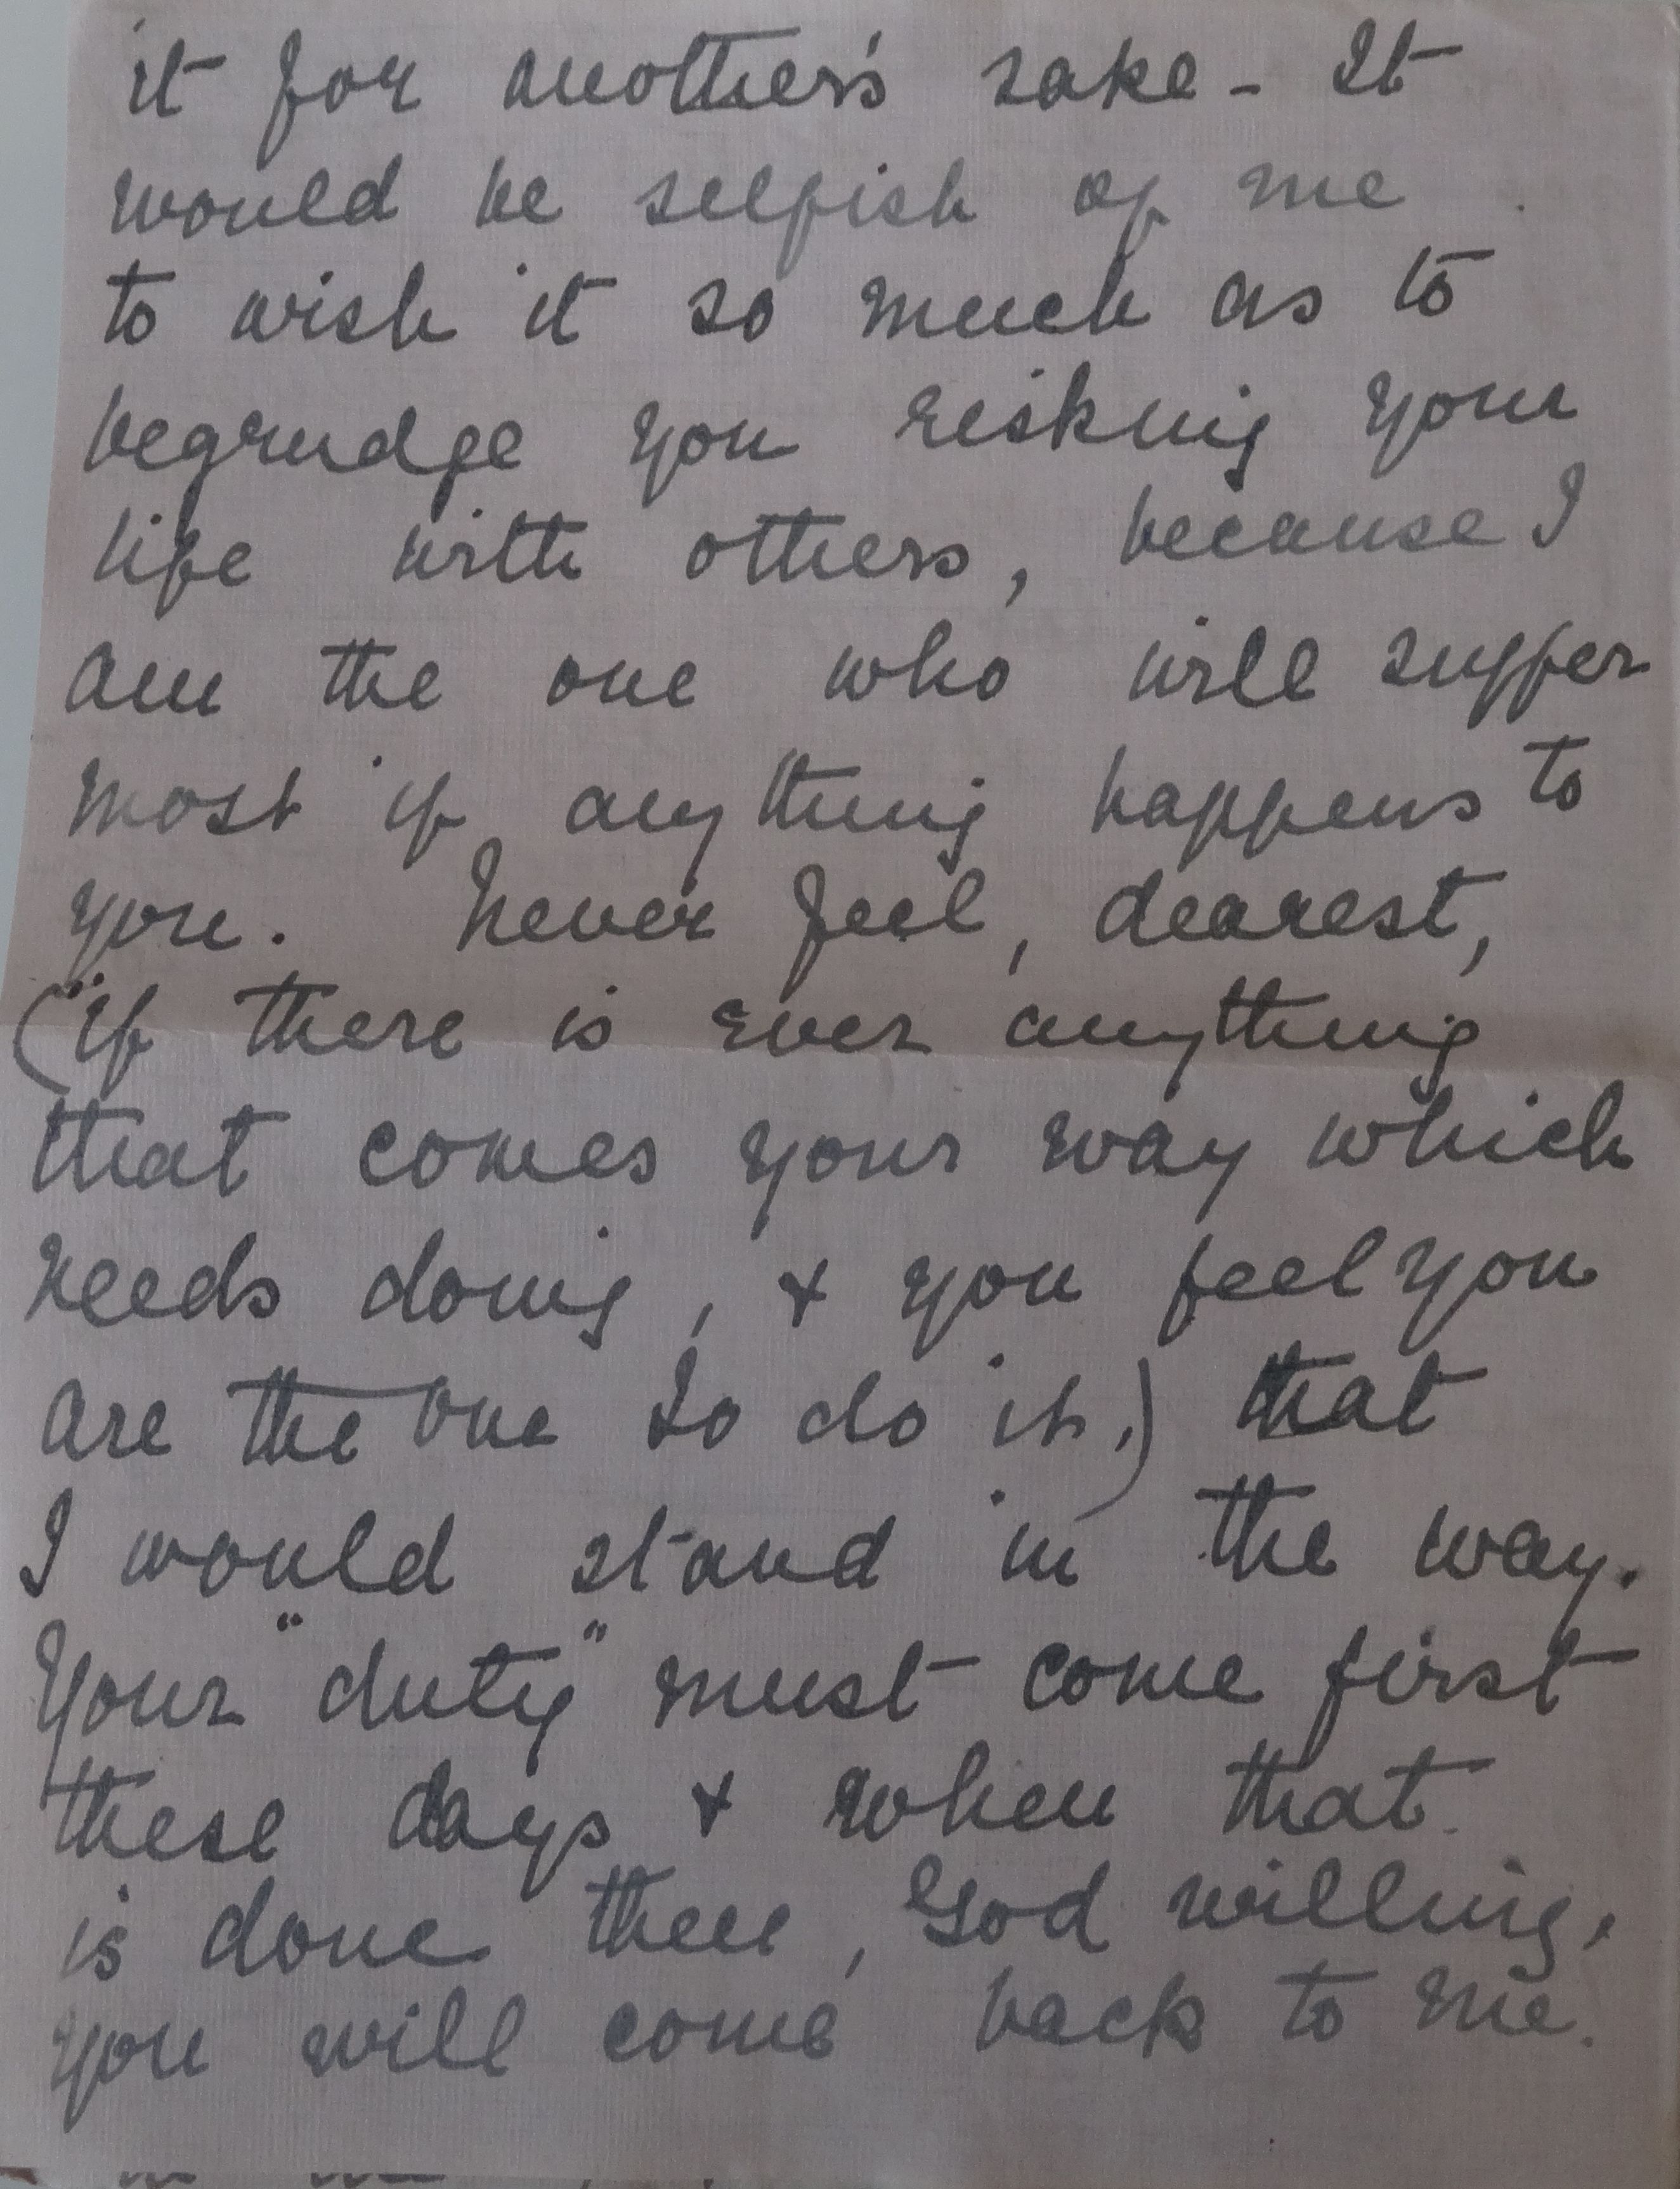 it for another's sake - It
would be selfish of me
to wish it so much as to
begrudge you risking your
life with others, because I
am the one who will suffer
most if anything happens to
you. Never feel, dearest,
(if there is ever anything
that comes your way which
needs doing, & you feel you
are the one to do it,) that
I would stand in the way.
Your "duty" must come first
these days & when that
is done then, God willing,
you will come back to me.